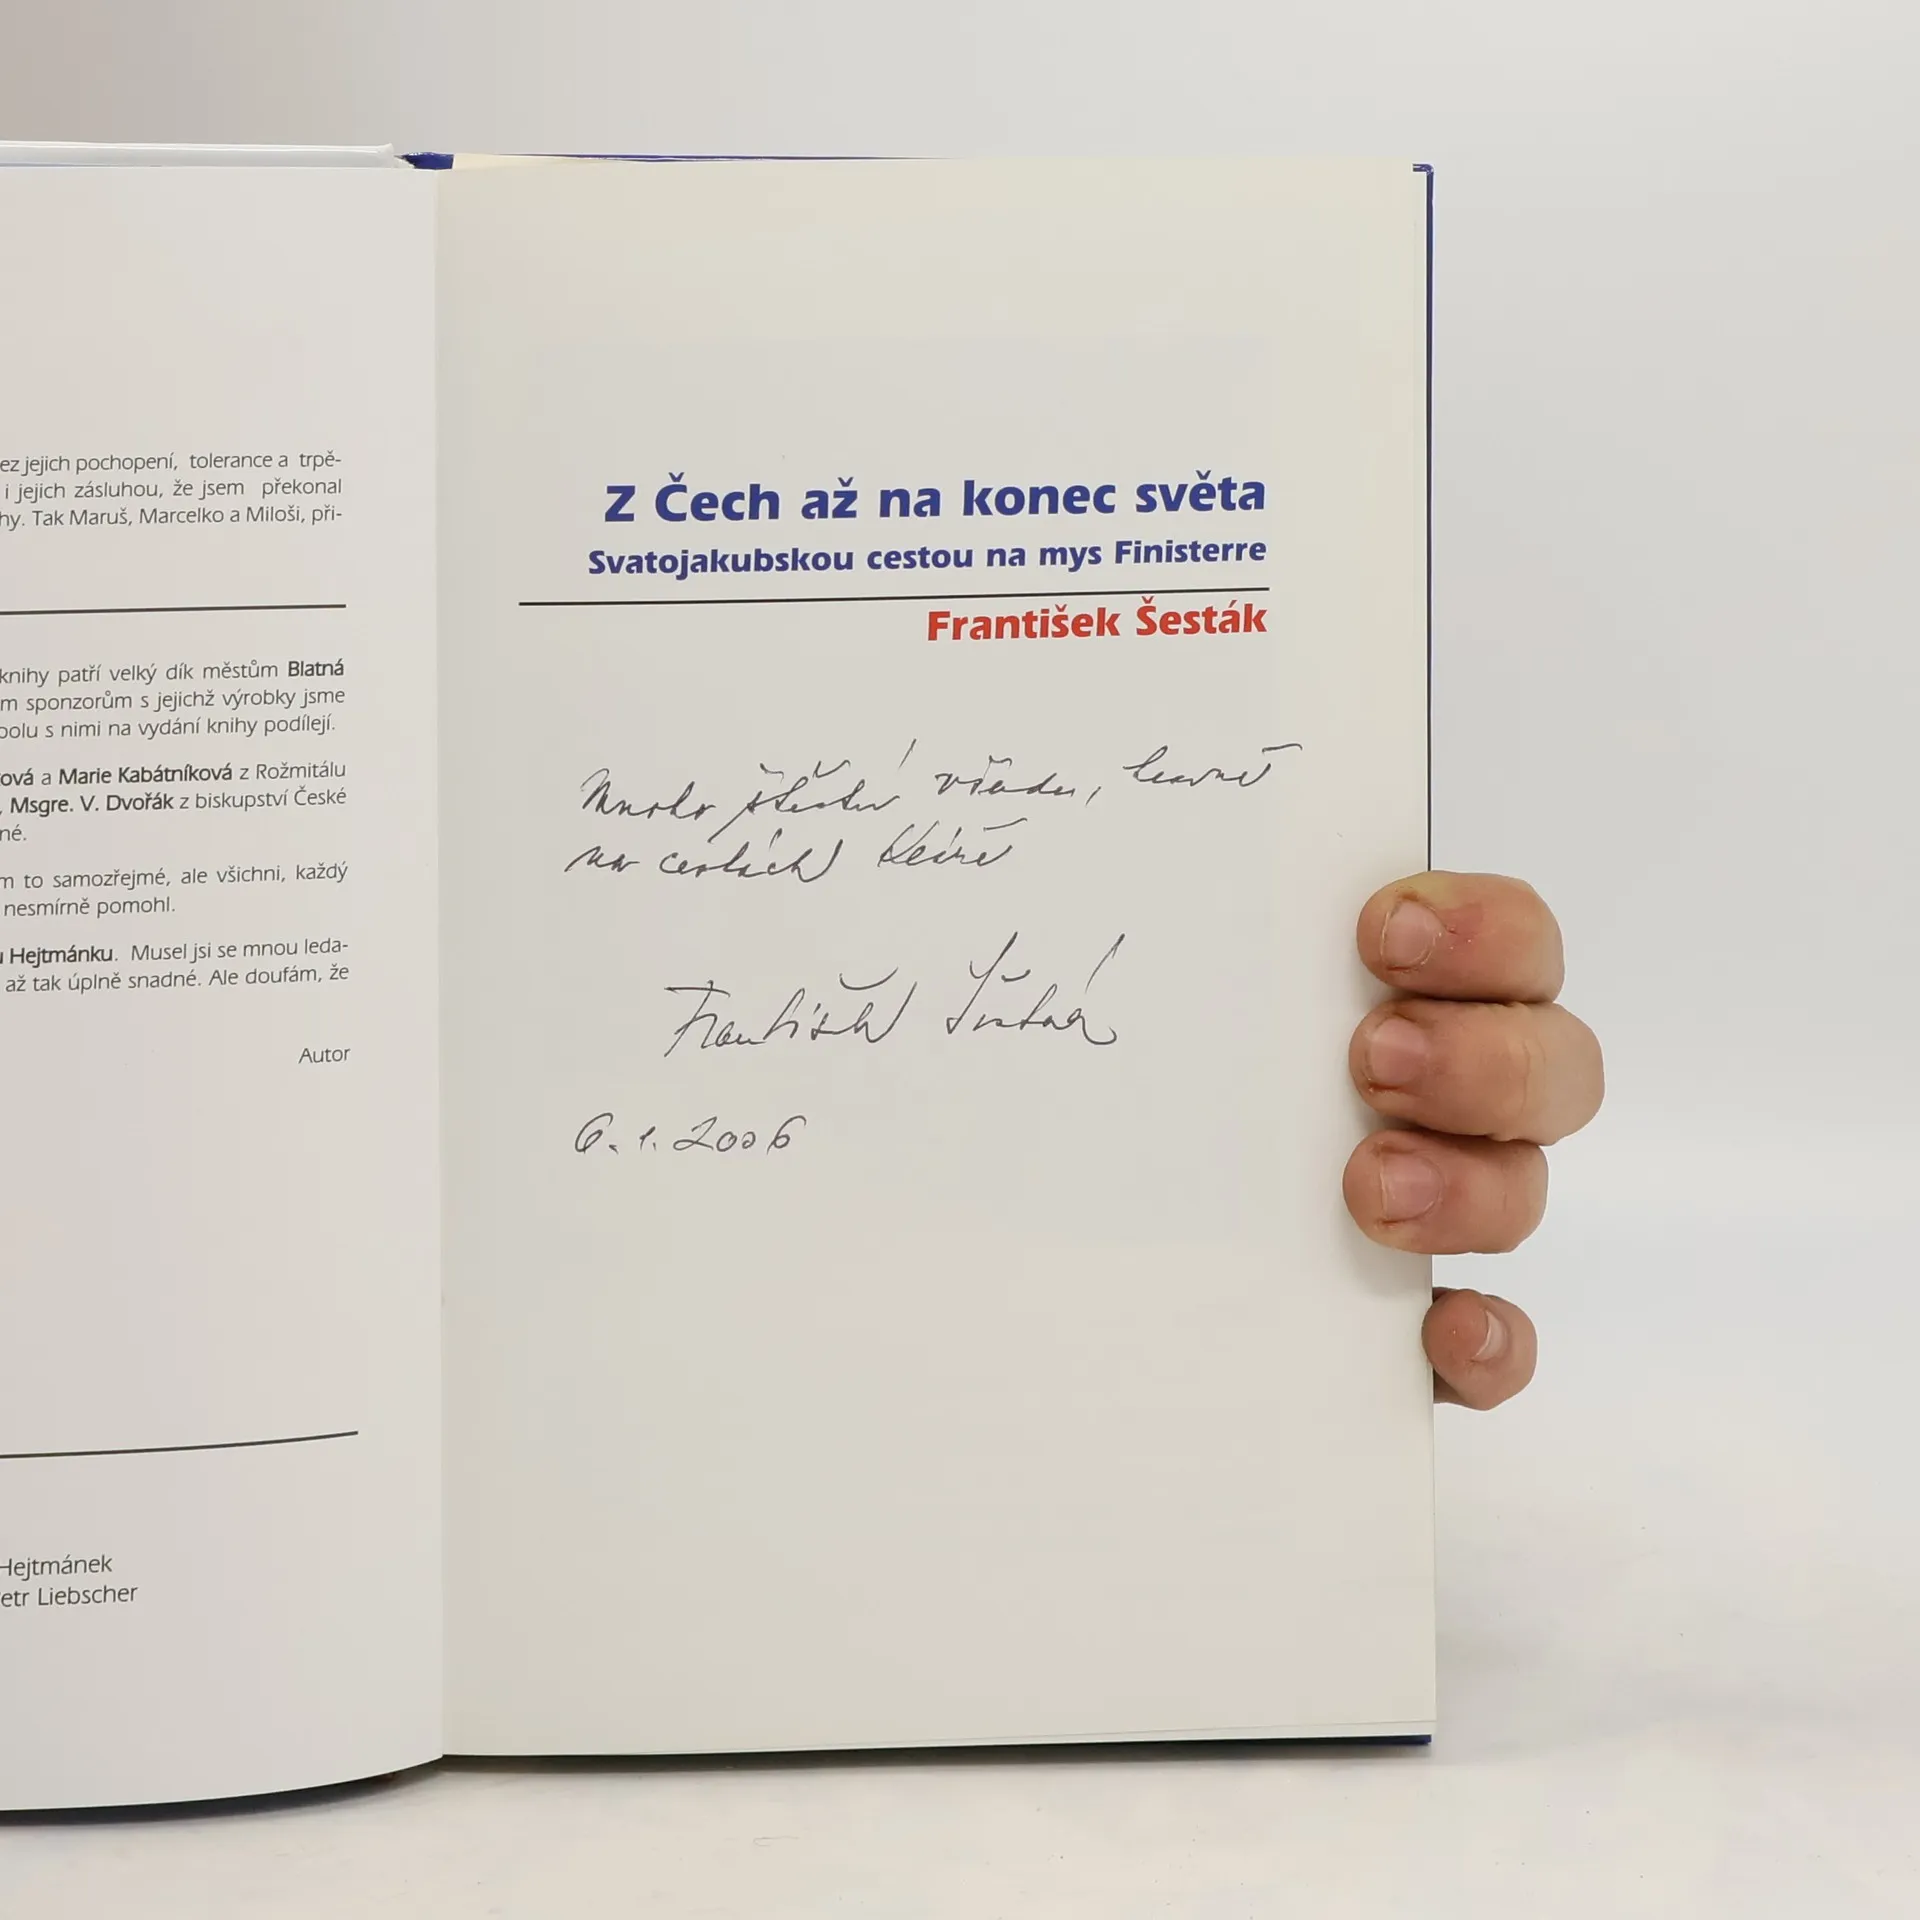 ez jejich pochopení, tolerance a trpě-
i jejich zásluhou, že jsem překonal
hy. Tak Maruš, Marcelko a Miloši, při-
knihy patří velký dík městům Blatná
m sponzorům s jejichž výrobky jsme
polu s nimi na vydání knihy podílejí.
ová a Marie Kabátníková z Rožmitálu
, Msgre. V. Dvořák z biskupství České
né.
m to samozřejmé, ale všichni, každý
nesmírně pomohl.
u Hejtmánku. Musel jsi se mnou leda-
až tak úplně snadné. Ale doufám, že
Autor
Hejtmánek
etr Liebscher
Z Čech až na konec světa
Svatojakubskou cestou na mys Finisterre
František Šesták
Mnoho štěstí všude, hlavně
na cestách
František Šesták
6. 1. 2006